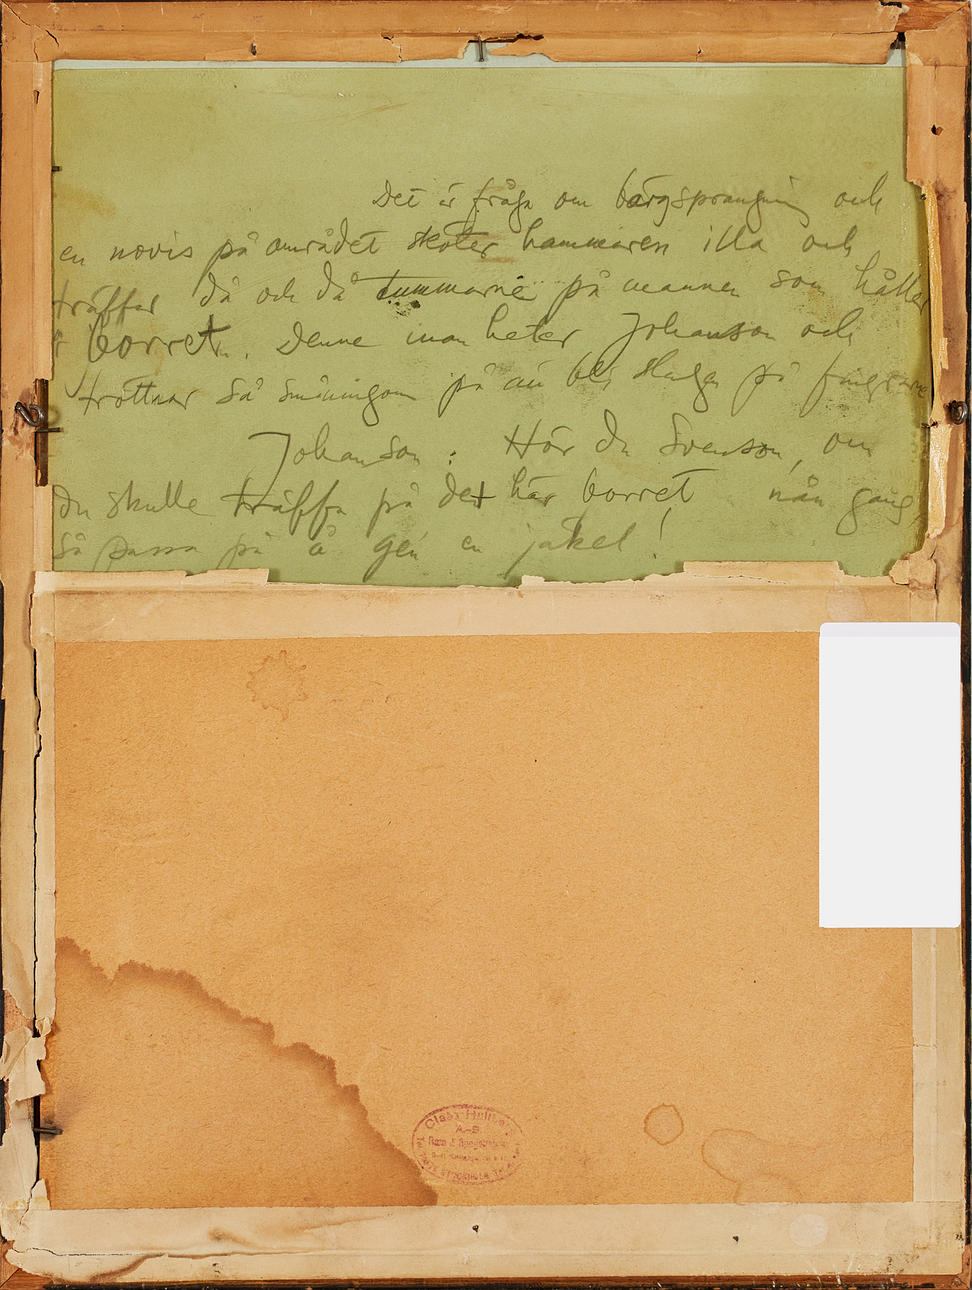 Det är fråga om bärgsprängning och
en novis på området sköter hammaren illa och
träffar då och då tummarne på mannen som håller
i borret. Denne man heter Johanson och
tröttnar så småningom på att bli slagen på fingrarne
Johanson: Hör du Svenson, om
du skulle träffa på det här borret nån gång,
så passa på å gé'n en jäkel!
Claes
A-B.
STOCKHOLM